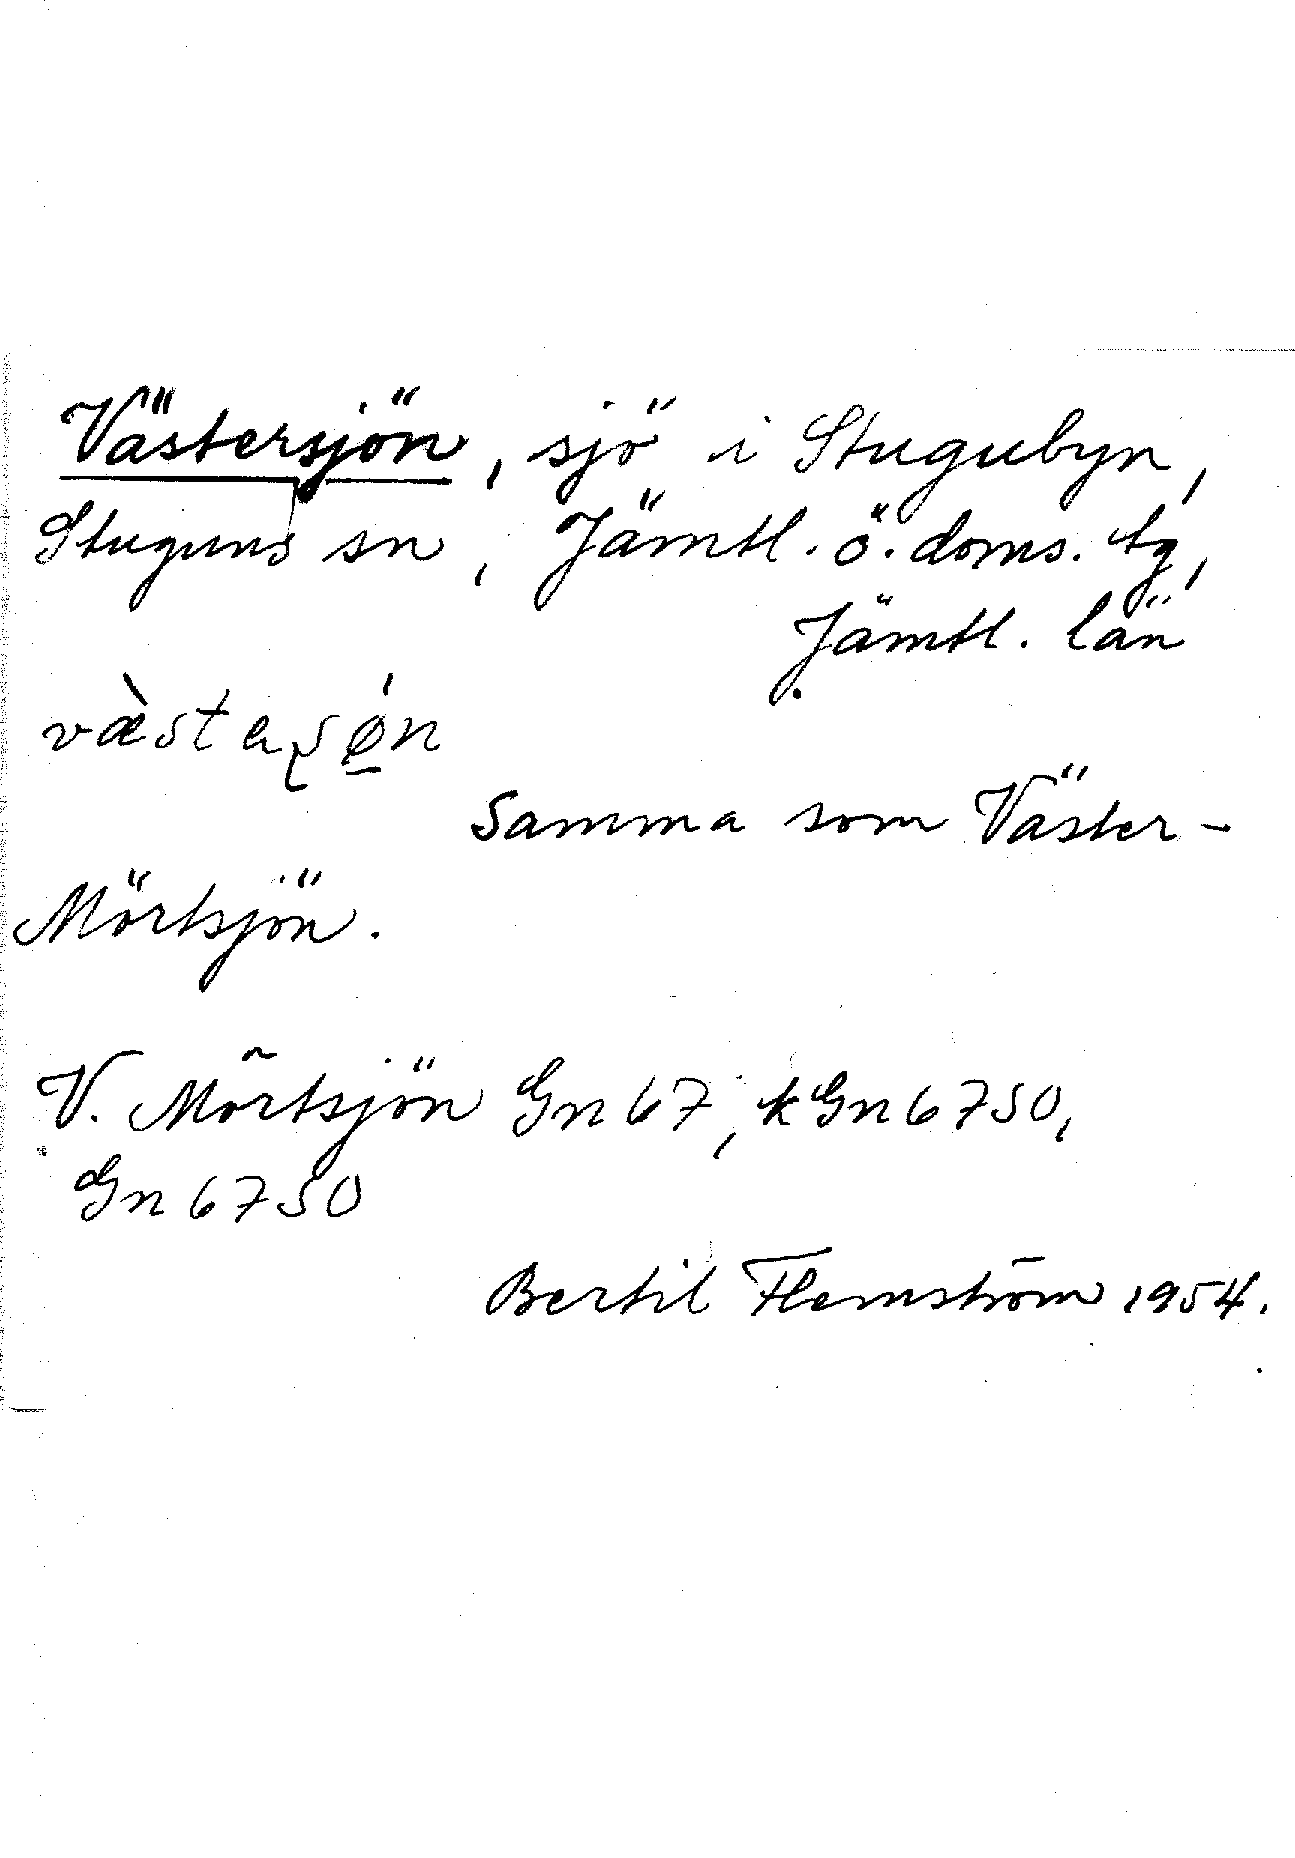 Västersjön, sjö i Stugubyn,
Stuguns sn, Jämtl. ö. doms. tg,
Jämtl. län
Samma som Väster-
Mörtsjön.
V. Mörtsjön Gn 67, kGn 6750,
Gn 6750
Bertil Flemström 1954.